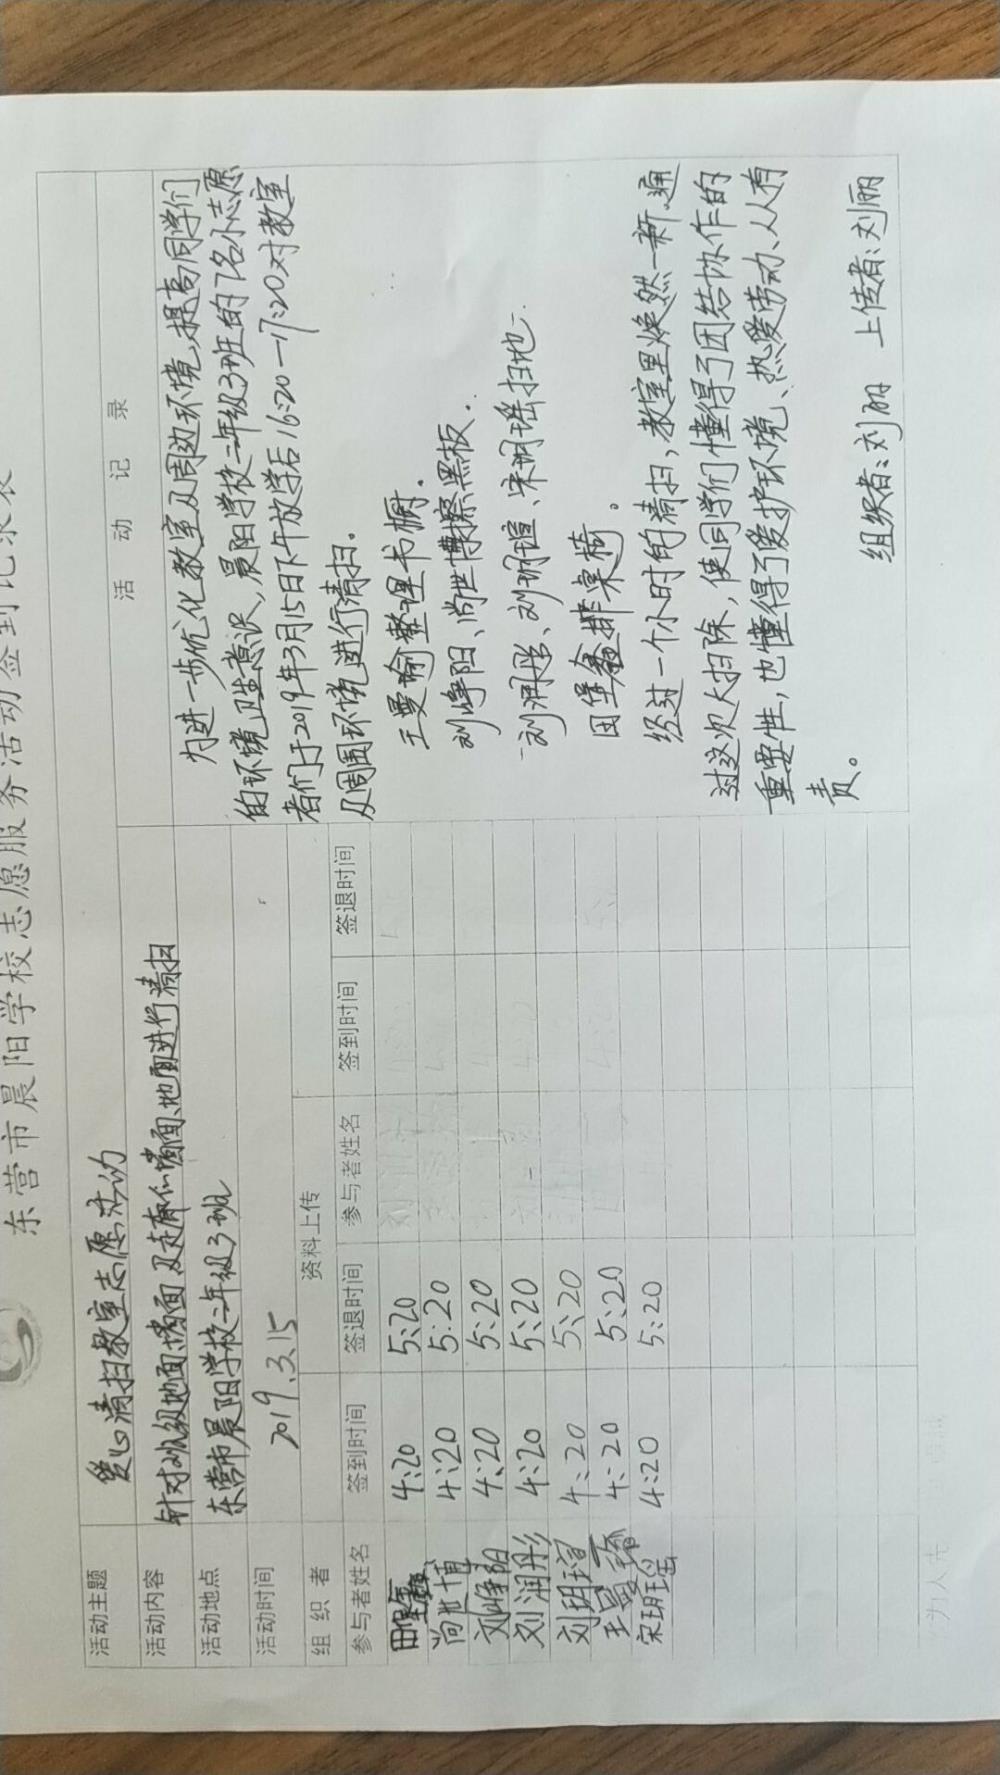 东营市晨阳学校志愿服务活动签到记录表
活动主题 爱心清扫教室志愿活动
活动内容 针对班级地面、墙面及走廊墙面、地面进行清扫
活动地点 东营市晨阳学校二年级3班
活动时间 2019.3.15
组织者 资料上传
参与者姓名 签到时间 签退时间 参与者姓名 签到时间 签退时间
田堡鑫 4:20 5:20
尚世博 4:20 5:20
刘峥阳 4:20 5:20
刘润彤 4:20 5:20
刘玥瑄 4:20 5:20
王曼 4:20 5:20
宋玥瑶 4:20 5:20
活动记录
为进一步优化教室及周边环境,提高同学们
的环境卫生意识,晨阳学校二年级3班的7名小志愿
者们于2019年3月15日下午放学后16:20—17:20对教室
及周围环境进行清扫.
王曼瑜整理书橱.
刘峥阳、尚世博擦黑板.
刘润彤、刘玥瑄、宋玥瑶扫地.
田堡鑫排桌椅。
经过一个小时的清扫,教室里焕然一新.通
过这次大扫除,使同学们懂得了团结协作的
重要性,也懂得了爱护环境、热爱劳动、人人有
责。
组织者:刘丽 上传者:刘丽